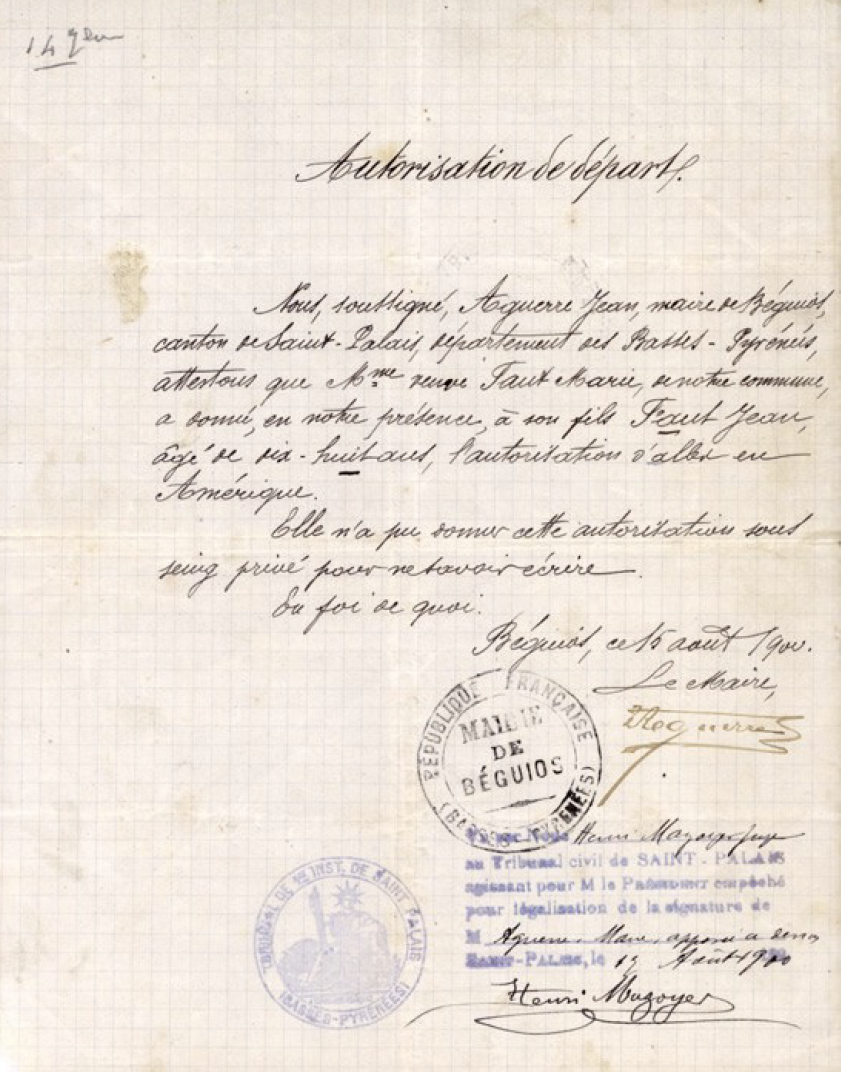 14
Autorisation de départ.
Nous, soussigné, Aguerre Jean, maire de Béguios,
canton de Saint-Palais, département des Basses-Pyrénées,
attestons que Mme veuve Faut Marie, de notre commune,
a donné, en notre présence, à son fils Faut Jean,
âgé de dix-huit ans, l'autorisation d'aller en
Amérique.
Elle n'a pu donner cette autorisation sous
seing privé pour ne savoir écrire.
En foi de quoi.
Béguios, ce 15 août 1900.
Le Maire,
Aguerre
RÉPUBLIQUE FRANÇAISE
MAIRIE
DE
BÉGUIOS
(BASSES-PYRÉNÉES)
Nous Henri Mazoyer juge
au Tribunal civil de SAINT-PALAIS
agissant pour M le Président empêché
pour légalisation de la signature de
M Aguerre, Maire, apposée ci dessus
SAINT-PALAIS, le Août 1900
Henri Mazoyer
TRIBUNAL DE 1re INST. DE SAINT PALAIS
(BASSES-PYRÉNÉES)